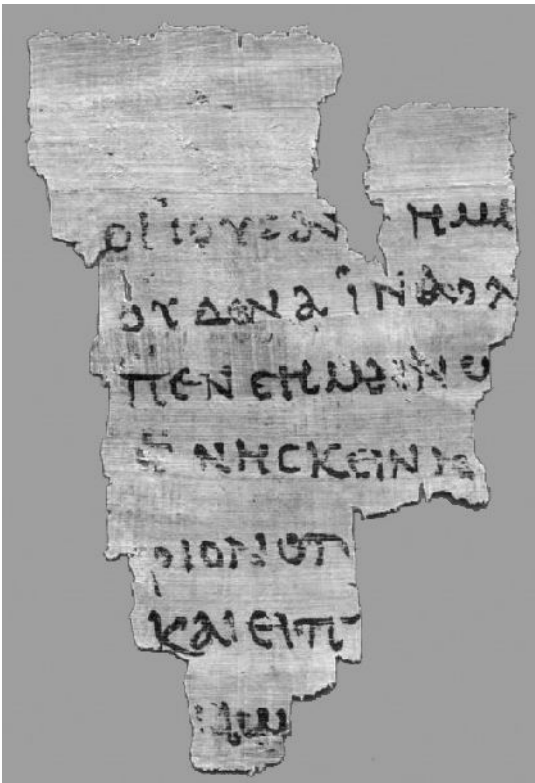 ΟΙ ΪΟΥΔΑΙ ΗΜ
ΟΥΔΕΝΑ ΪΝΑ Ο Λ
ΠΕΝ CΗΜΑΙΝω
ΘΝΗCΚΕΙΝ ΙC
ΡΙΟΝ Ο Π
ΚΑΙ ΕΙΠ
ΑΙω